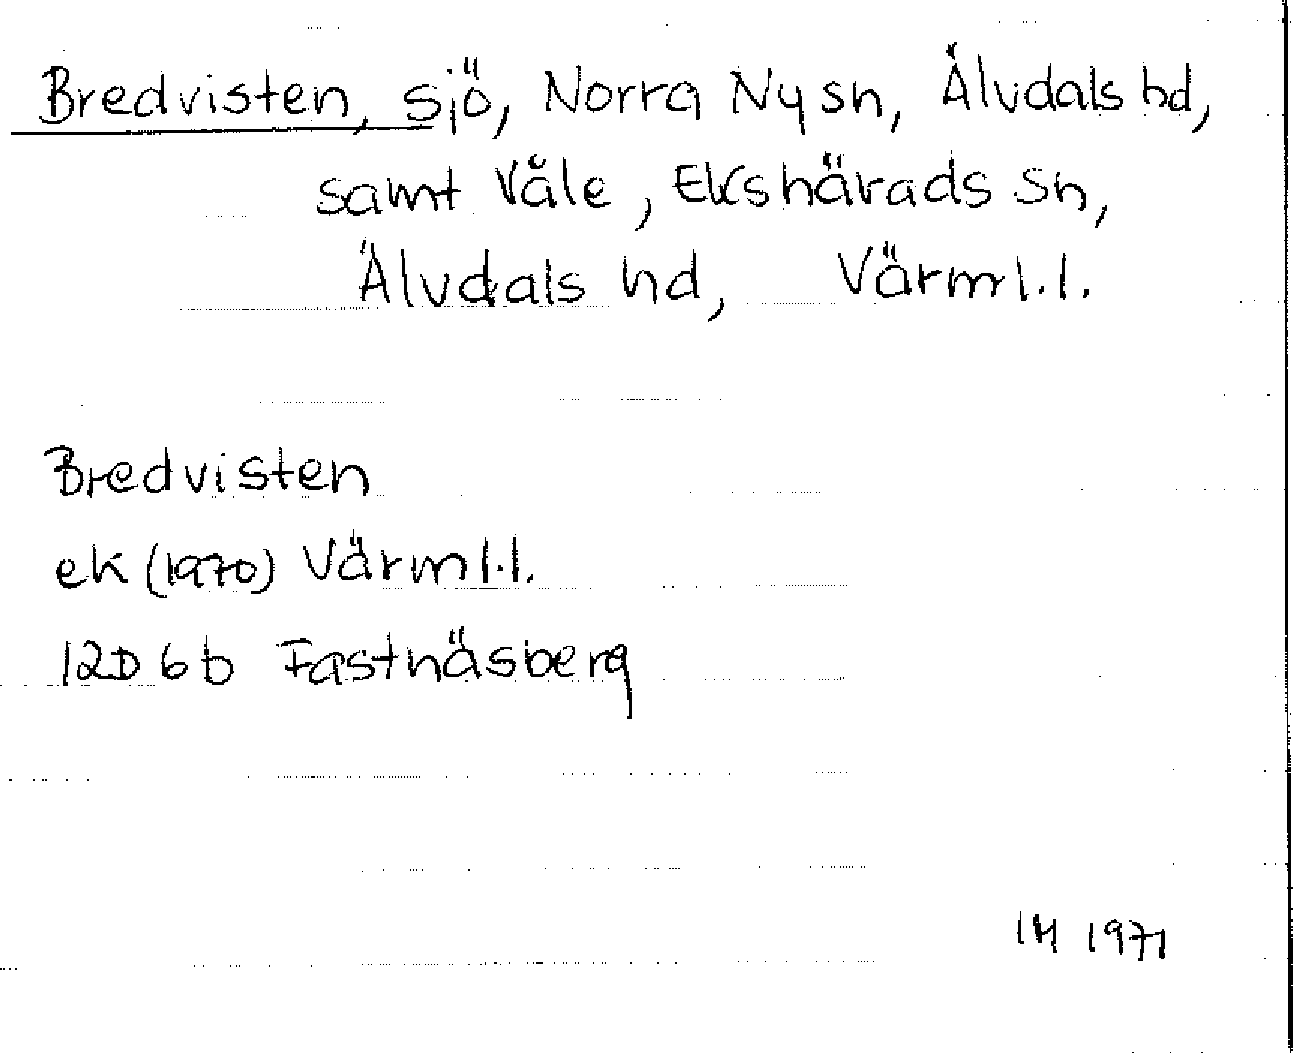 Bredvisten, sjö, Norra Ny sn, Älvdals hd,
samt Våle, Ekshärads sn,
Älvdals hd, Värml.l.
Bredvisten
ek (1970) Värml.l.
12D 6b Fastnäsberg
IH 1971